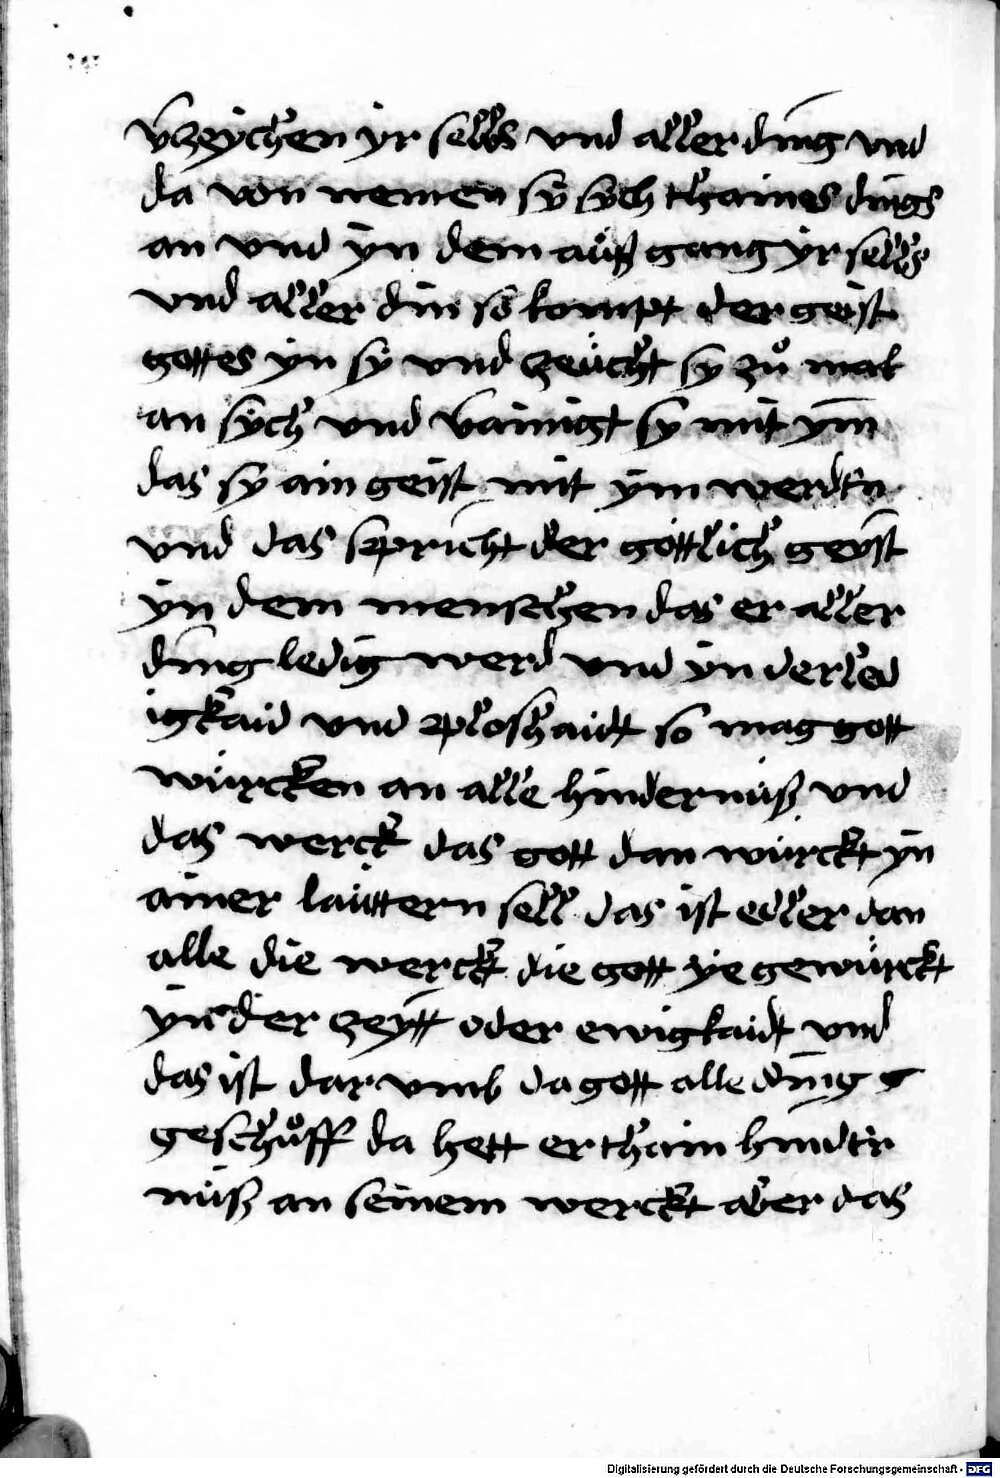 v̄zeychen yr selbs vnd aller ding vnd
da von nemen sy sych khaines dings
an vnd yn dem aüß gang yr selbs
vnd aller din so kompt der geist
gottes yn sy vnd zeücht sy zuͦ mal
an sych vnd v̄ainigt sy mit ym̄
das sy ain geist mit ym werdẽn
vnd das spricht der göttlich geyst
yn dem menschen das er aller
ding ledig werd vnd yn der led
igkaid vnd ploshaidt so mag gott
würcken an alle hindernüß vnd
das werck das gott dan würckt yn
ainer laüttern sell das ist edler dan
alle die werck die gott ye gewürckt
yn der zeytt oder ewigkaidt vnd
das ist dar vmb da gott alle ding g
geschuͦff da hett er khain hinder
nüß an seinem werckt aber das
Digitalisierung gefördert durch die Deutsche Forschungsgemeinschaft - DFG